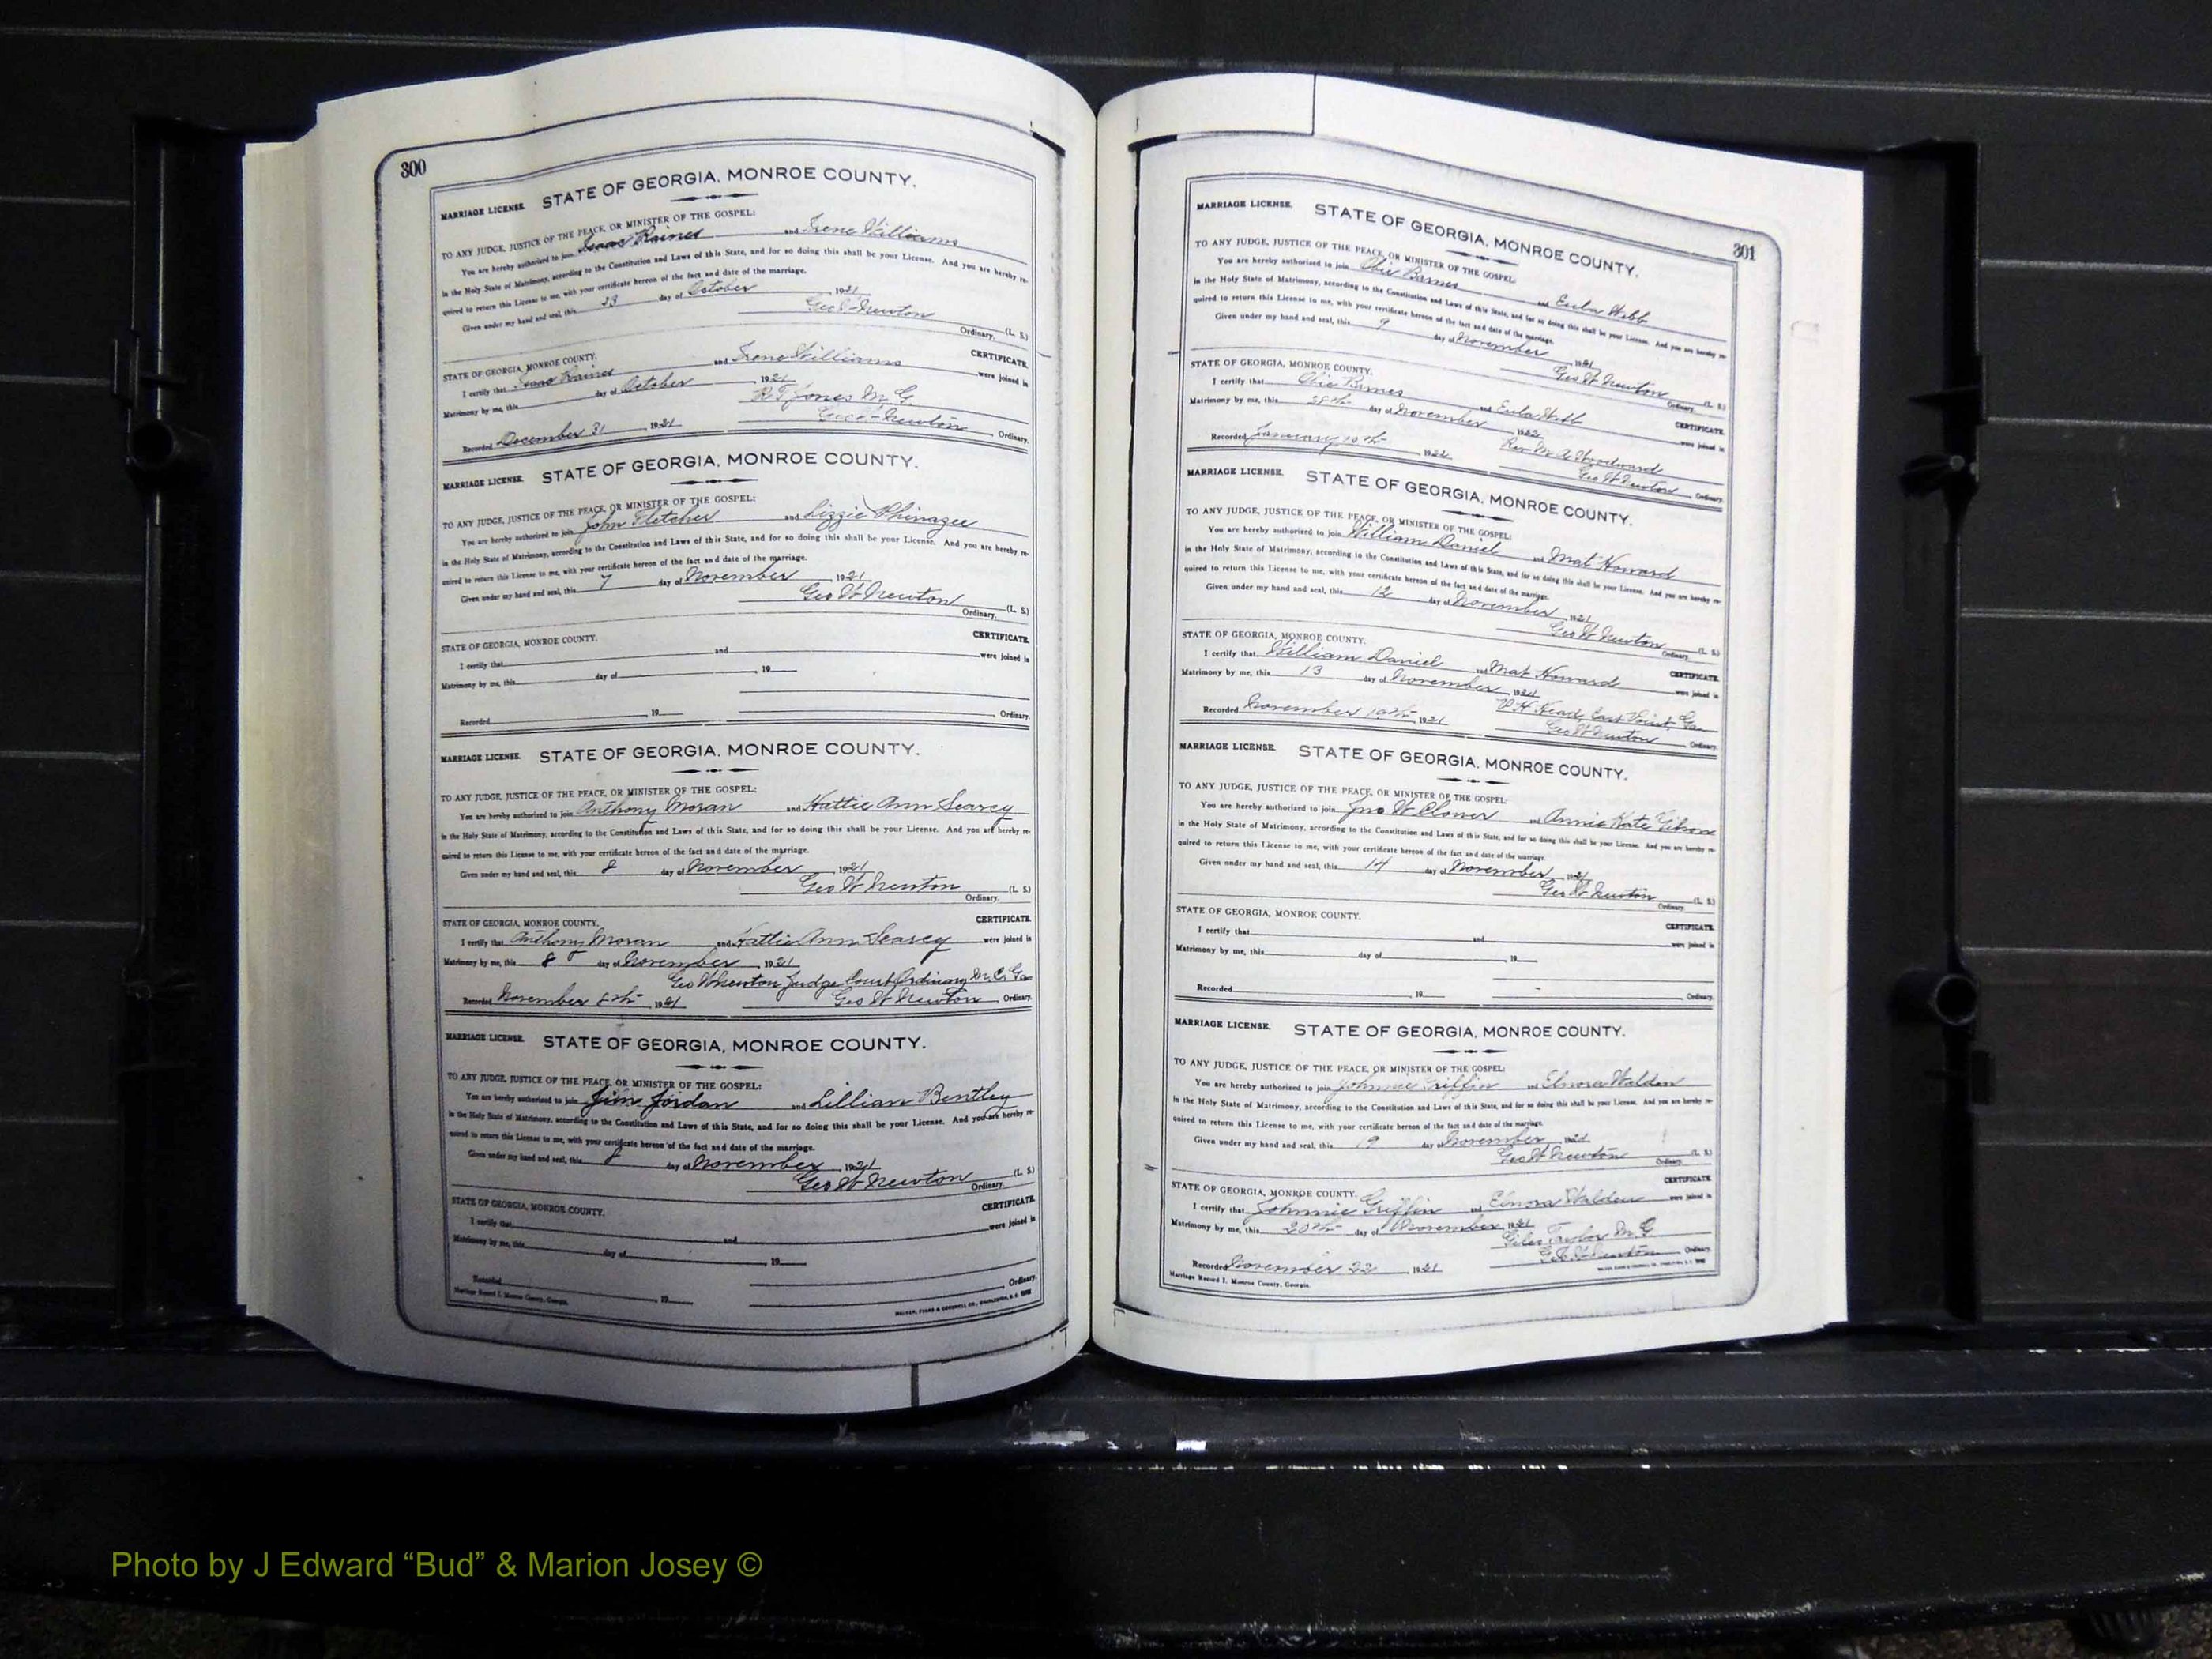 300
MARRIAGE LICENSE. STATE OF GEORGIA, MONROE COUNTY.
TO ANY JUDGE, JUSTICE OF THE PEACE, OR MINISTER OF THE GOSPEL:
You are hereby authorized to join Isaac Raines and Irene Williams
in the Holy State of Matrimony, according to the Constitution and Laws of this State, and for so doing this shall be your License. And you are hereby re-
quired to return this License to me, with your certificate hereon of the fact and date of the marriage.
Given under my hand and seal, this 23 day of October, 1921
Geo W Newton (L. S.)
Ordinary.
STATE OF GEORGIA, MONROE COUNTY. CERTIFICATE.
I certify that Isaac Raines and Irene Williams were joined in
Matrimony by me, this day of October, 1921
R T Jones M. G.
Recorded December 31, 1921 Geo W Newton Ordinary.
MARRIAGE LICENSE. STATE OF GEORGIA, MONROE COUNTY.
TO ANY JUDGE, JUSTICE OF THE PEACE, OR MINISTER OF THE GOSPEL:
You are hereby authorized to join John Fletcher and Lizzie Phinazee
in the Holy State of Matrimony, according to the Constitution and Laws of this State, and for so doing this shall be your License. And you are hereby re-
quired to return this License to me, with your certificate hereon of the fact and date of the marriage.
Given under my hand and seal, this 7 day of November, 1921
Geo W Newton (L. S.)
Ordinary.
STATE OF GEORGIA, MONROE COUNTY. CERTIFICATE.
I certify that and were joined in
Matrimony by me, this day of , 19
Recorded , 19 Ordinary.
MARRIAGE LICENSE. STATE OF GEORGIA, MONROE COUNTY.
TO ANY JUDGE, JUSTICE OF THE PEACE, OR MINISTER OF THE GOSPEL:
You are hereby authorized to join Anthony Moran and Hattie Ann Searcy
in the Holy State of Matrimony, according to the Constitution and Laws of this State, and for so doing this shall be your License. And you are hereby re-
quired to return this License to me, with your certificate hereon of the fact and date of the marriage.
Given under my hand and seal, this 8 day of November, 1921
Geo W Newton (L. S.)
Ordinary.
STATE OF GEORGIA, MONROE COUNTY. CERTIFICATE.
I certify that Anthony Moran and Hattie Ann Searcy were joined in
Matrimony by me, this 8 day of November, 1921
Geo W Newton Judge Court Ordinary M. C. Ga
Recorded November 8th, 1921 Geo W Newton, Ordinary.
MARRIAGE LICENSE. STATE OF GEORGIA, MONROE COUNTY.
TO ANY JUDGE, JUSTICE OF THE PEACE, OR MINISTER OF THE GOSPEL:
You are hereby authorized to join Jim Jordan and Lillian Bentley
in the Holy State of Matrimony, according to the Constitution and Laws of this State, and for so doing this shall be your License. And you are hereby re-
quired to return this License to me, with your certificate hereon of the fact and date of the marriage.
Given under my hand and seal, this 8 day of November, 1921
Geo W Newton (L. S.)
Ordinary.
STATE OF GEORGIA, MONROE COUNTY. CERTIFICATE.
I certify that and were joined in
Matrimony by me, this day of , 19
Recorded , 19 Ordinary.
Marriage Record I. Monroe County, Georgia. WALKER, EVANS & COGSWELL CO., CHARLESTON, S. C.
301
MARRIAGE LICENSE. STATE OF GEORGIA, MONROE COUNTY.
TO ANY JUDGE, JUSTICE OF THE PEACE, OR MINISTER OF THE GOSPEL:
You are hereby authorized to join Obie Barnes and Eula Webb
in the Holy State of Matrimony, according to the Constitution and Laws of this State, and for so doing this shall be your License. And you are hereby re-
quired to return this License to me, with your certificate hereon of the fact and date of the marriage.
Given under my hand and seal, this 9 day of November, 1921
Geo W Newton (L. S.)
Ordinary.
STATE OF GEORGIA, MONROE COUNTY. CERTIFICATE.
I certify that Obie Barnes and Eula Webb were joined in
Matrimony by me, this 28th day of November, 1922
Rev M A Woodward
Recorded January 10th, 1922 Geo W Newton, Ordinary.
MARRIAGE LICENSE. STATE OF GEORGIA, MONROE COUNTY.
TO ANY JUDGE, JUSTICE OF THE PEACE, OR MINISTER OF THE GOSPEL:
You are hereby authorized to join William Daniel and Mat Howard
in the Holy State of Matrimony, according to the Constitution and Laws of this State, and for so doing this shall be your License. And you are hereby re-
quired to return this License to me, with your certificate hereon of the fact and date of the marriage.
Given under my hand and seal, this 12 day of November, 1921
Geo W Newton (L. S.)
Ordinary.
STATE OF GEORGIA, MONROE COUNTY. CERTIFICATE.
I certify that William Daniel and Mat Howard were joined in
Matrimony by me, this 13 day of November, 1921
Head, East Point, Ga
Recorded November, 1921 Geo W Newton Ordinary.
MARRIAGE LICENSE. STATE OF GEORGIA, MONROE COUNTY.
TO ANY JUDGE, JUSTICE OF THE PEACE, OR MINISTER OF THE GOSPEL:
You are hereby authorized to join Jno W Clower and Annie Kate Gibson
in the Holy State of Matrimony, according to the Constitution and Laws of this State, and for so doing this shall be your License. And you are hereby re-
quired to return this License to me, with your certificate hereon of the fact and date of the marriage.
Given under my hand and seal, this 14 day of November, 1921
Geo W Newton (L. S.)
Ordinary.
STATE OF GEORGIA, MONROE COUNTY. CERTIFICATE.
I certify that and were joined in
Matrimony by me, this day of , 19
Recorded , 19 Ordinary.
MARRIAGE LICENSE. STATE OF GEORGIA, MONROE COUNTY.
TO ANY JUDGE, JUSTICE OF THE PEACE, OR MINISTER OF THE GOSPEL:
You are hereby authorized to join Johnnie Griffin and Elnora Walden
in the Holy State of Matrimony, according to the Constitution and Laws of this State, and for so doing this shall be your License. And you are hereby re-
quired to return this License to me, with your certificate hereon of the fact and date of the marriage.
Given under my hand and seal, this 19 day of November, 1921
Geo W Newton (L. S.)
Ordinary.
STATE OF GEORGIA, MONROE COUNTY. CERTIFICATE.
I certify that Johnnie Griffin and Elnora Walden were joined in
Matrimony by me, this 20th day of November, 1921
Giles Taylor M. G
Recorded November 22, 1921 Geo W Newton Ordinary.
Marriage Record I. Monroe County, Georgia. WALKER, EVANS & COGSWELL CO., CHARLESTON, S. C.
Photo by J Edward “Bud” & Marion Josey ©